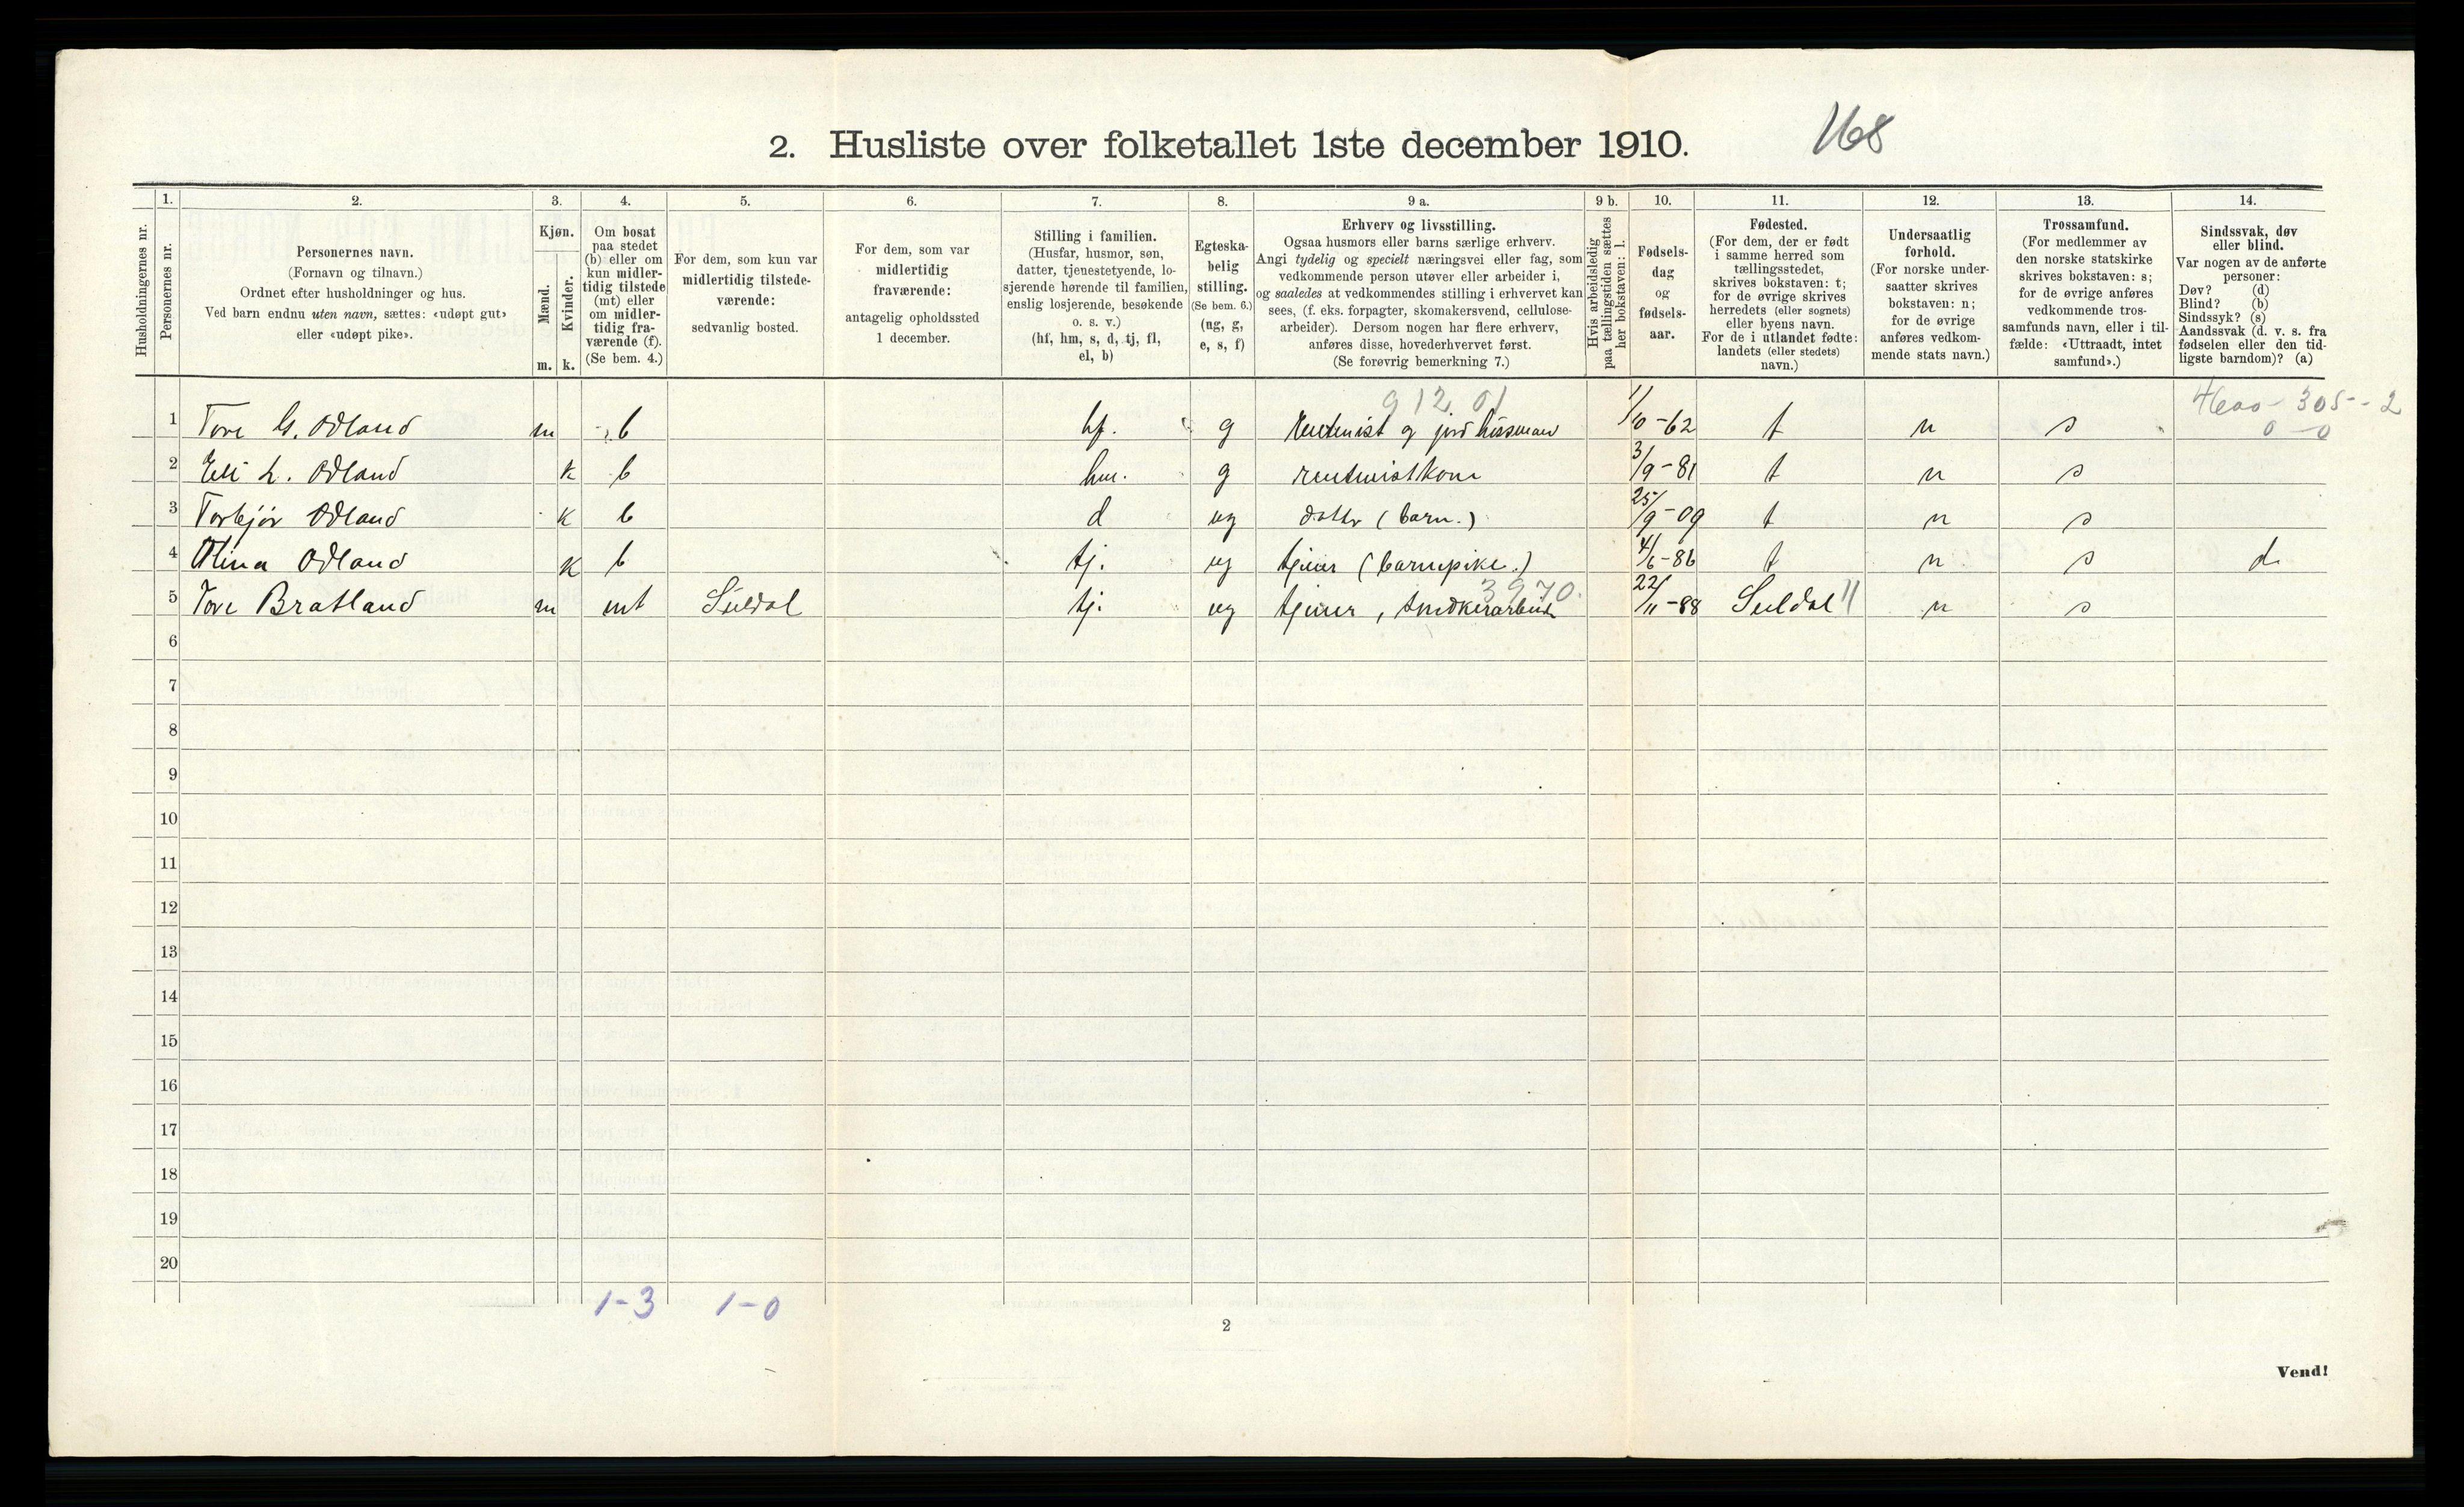 2. Husliste over folketallet 1ste december 1910. 168
Husholdningernes nr.
1. Personernes nr.
2. Personernes navn.
(Fornavn og tilnavn.)
Ordnet efter husholdninger og hus.
Ved barn endnu uten navn, sættes: «udøpt gut»
eller «udøpt pike».
3. Kjøn.
Mænd. m.
Kvinder. k.
4. Om bosat
paa stedet
(b) eller om
kun midler-
tidig tilstede
(mt) eller
om midler-
tidig fra-
værende (f).
(Se bem. 4.)
5. For dem, som kun var
midlertidig tilstede-
værende:
sedvanlig bosted.
6. For dem, som var
midlertidig
fraværende:
antagelig opholdssted
1 december.
7. Stilling i familien.
(Husfar, husmor, søn,
datter, tjenestetyende, lo-
sjerende hørende til familien,
enslig losjerende, besøkende
o. s. v.)
(hf, hm, s, d, tj, fl,
el, b)
8. Egteska-
belig
stilling.
(Se bem. 6.)
(ug, g,
e, s, f)
9 a. Erhverv og livsstilling.
Ogsaa husmors eller barns særlige erhverv.
Angi tydelig og specielt næringsvei eller fag, som
vedkommende person utøver eller arbeider i,
og saaledes at vedkommendes stilling i erhvervet kan
sees, (f. eks. forpagter, skomakersvend, cellulose-
arbeider). Dersom nogen har flere erhverv,
anføres disse, hovederhvervet først.
(Se forøvrig bemerkning 7.)
9 b. Hvis arbeidsledig
paa tællingstiden sættes
her bokstaven: l.
10. Fødsels-
dag
og
fødsels-
aar.
11. Fødested.
(For dem, der er født
i samme herred som
tællingsstedet,
skrives bokstaven: t;
for de øvrige skrives
herredets (eller sognets)
eller byens navn.
For de i utlandet fødte:
landets (eller stedets)
navn.)
12. Undersaatlig
forhold.
(For norske under-
saatter skrives
bokstaven: n;
for de øvrige
anføres vedkom-
mende stats navn.)
13. Trossamfund.
(For medlemmer av
den norske statskirke
skrives bokstaven: s;
for de øvrige anføres
vedkommende tros-
samfunds navn, eller i til-
fælde: «Uttraadt, intet
samfund».)
14. Sindssvak, døv
eller blind.
Var nogen av de anførte
personer:
Døv? (d)
Blind? (b)
Sindssyk? (s)
Aandssvak (d. v. s. fra
fødselen eller den tid-
ligste barndom)? (a)
91201 4600 - 305 - 2
0 - 0
1 Tore G. Odland m b hf. g Rentenist og jord 1/10-62 t n s
2 Eli L. Odland k b hm. g rentenistkone 3/9-81 t n s
3 Torbjør Odland k b d ug datter (barn.) 25/9-09 t n s
4 Olina Odland k b tj. ug tjener (barnepike.) 4/6-86 t n s d.
3970.
5 Tore Bratland m mt Suldal tj. ug tjener, snedkerarbeide 22/11-88 Suldal 11 n s
6
7
8
9
10
11
12
13
14
15
16
17
18
19
20
1-3 1-0
2
Vend!